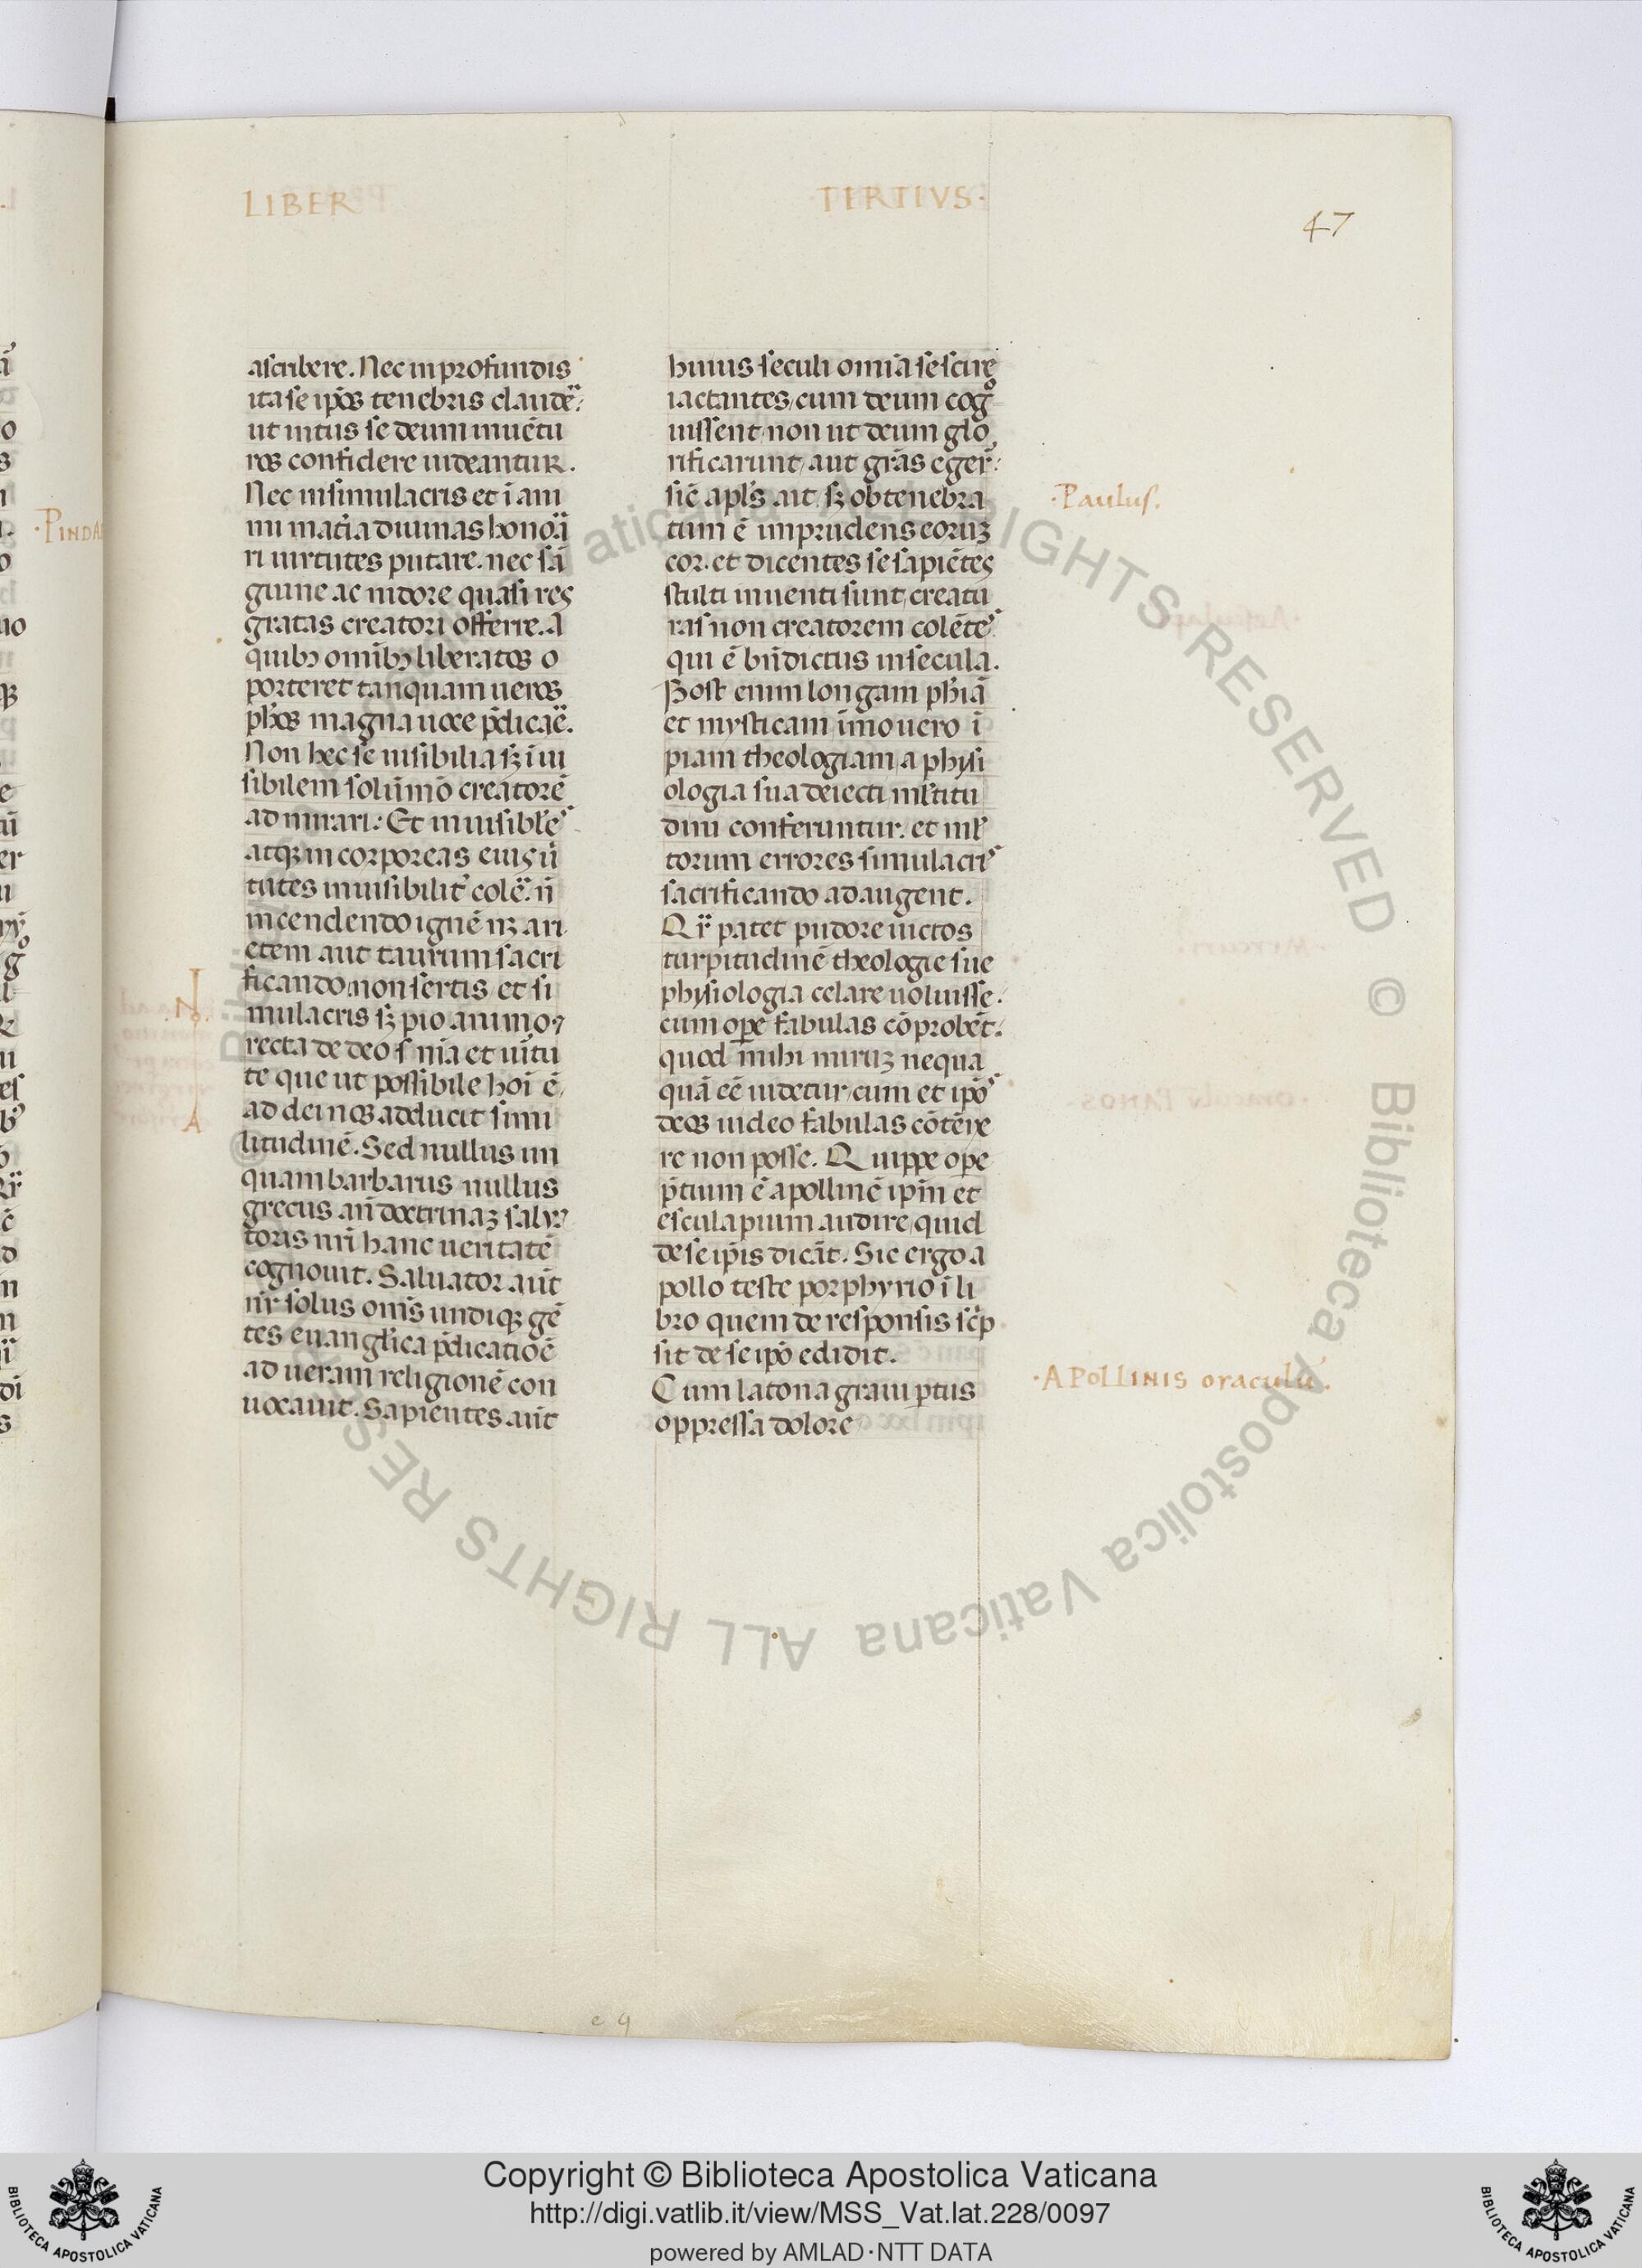 LIBER
TERTIVS.
47
ascribere. Nec in profundis
ita se ip̄os tenebris claude᷑:
ut intus se deum inuētu
ros confidere uideantur.
Nec in simulacris et ī ani
mi mat̄ia diuinas hono᷑a
ri uirtutes putare. nec sā
guine ac nidore quasi res
gratas creatori offerre. A
quibꝫ omībꝫ liberatos o
porteret tanquam ueros
ph̄os magna uoce p̄dicae᷑.
Non hec se uisibilia sꝫ īui
sibilem solūmō creatorē
admirari: Et inuisibl̄es
atqꝫ incorporeas eius ū
tutes inuisibilit᷑ cole᷑. n̄
incendendo ignē nꝫ ari
etem aut taurum sacri
ficando. non sertis et si
mulacris sꝫ pio animo ⁊
recta de deo s̄nīa et ūitu
te que ut possibile hoī ē,
ad dei nos adducit simi
litudinē. Sed nullus un
quam barbarus nullus
grecus an̄ doctrinaꝫ salua
toris nr̄i hanc ueritatē
cognouit. Saluator aūt
nr̄ solus om̄s undiqꝫ gē
tes euangl̄ica p̄dicatiōē
ad ueram religionē con
uocauit. Sapientes aūt
huius seculi omīa se scire
iactantes cum deum cogͦ
uissent non ut deum glo
rificarunt, aut grās eger᷑:
sic̄ apl̄s ait sꝫ obtenebra
tum ē imprudens eoruꝫ
cor. et dicentes se sapiētes
stulti inuenti sunt, creatu
ras non creatorem colētes
qui ē bn̄dictus in secula.
Post enim longam ph̄iā
et mysticam īmo uero ī
piam theologiam, a physi
ologia sua deiecti ml̄titu
dini conferuntur. et ml̄
torum errores simulacris
sacrificando adaugent.
Qr̄ patet pudore uictos
turpitudinē theologie sue
physiologia celare uoluisse.
cum oꝑe fabulas cōprobēt.
quod mihi miruꝫ nequa
quā eē uidetur, cum et ip̄os
deos uideo fabulas cōtēne
re non posse. Quippe oꝑe
p̄tium ē apollinē ip̄m et
esculapium audire, quid
de se ip̄is dicāt. Sic ergo a
pollo teste porphyrio ī li
bro quem de responsis sc̄p
sit de se ip̄o edidit.
Cum latona graui ꝑtus
oppressa dolore
.Paulus.
.APOLLINIS oraculū.
.PINDA
N
A
e 9
Copyright © Biblioteca Apostolica Vaticana
http://digi.vatlib.it/view/MSS_Vat.lat.228/0097
powered by AMLAD·NTT DATA
BIBLIOTECA APOSTOLICA VATICANA
BIBLIOTECA APOSTOLICA VATICANA
© Biblioteca Apostolica Vaticana ALL RIGHTS RESERVED